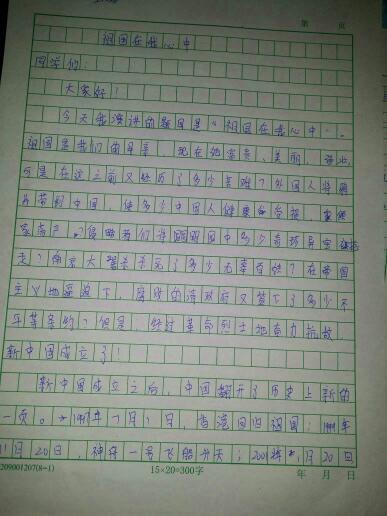 第 页
祖国在我心中
同学们：
大家好！
今天我演讲的题目是“祖国在我心中”。
祖国是我们的母亲，现在她富贵、美丽、
可是在这之前又经历了多少苦难？外国人将鸦
片带到中国，使多少中国人健康
家 产。？侵略者们将圆明园中多少奇珍异宝
走？南京大 杀 死了多少无辜百姓？在帝国
主义地逼迫下，腐败的清政府又签下了多少不
平等条约？但是，经过革命烈士地奋力抗敌，
新中国成立了！
新中国成立之后，中国翻开了历史上新的
一页。1997年7月1日，香港回归祖国；1999年
11月20日，神舟一号飞船升天；2001年 月20日
209001207(8-1)
15×20=300字
年 月 日